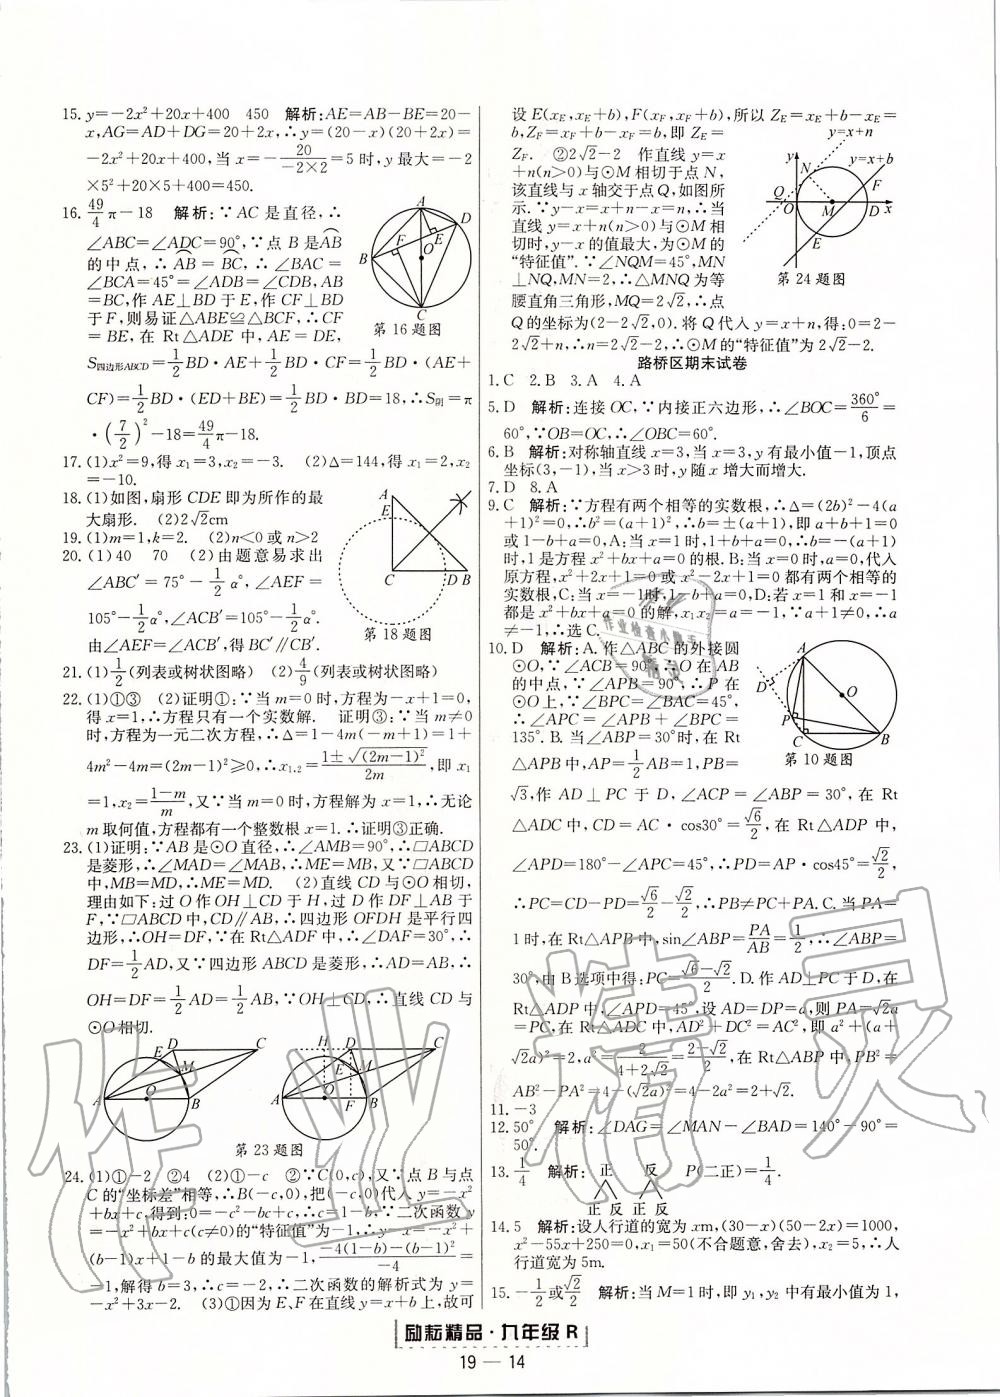 15. y=-2x²+20x+400　450　解析:AE=AB-BE=20-
x,AG=AD+DG=20+2x,∴y=(20-x)(20+2x)=
-2x²+20x+400,当 x=-20/(-2×2)=5 时,y最大=-2
×5²+20×5+400=450.
16. 49/4π-18　解析:∵AC 是直径,∴
∠ABC=∠ADC=90°,∵点 B 是AB
的中点,∴AB=BC,∴∠BAC=
∠BCA=45°=∠ADB=∠CDB,AB
=BC,作 AE⊥BD 于 E,作 CF⊥BD
于 F,则易证△ABE≌△BCF,∴CF
=BE,在 Rt△ADE 中,AE=DE,
S四边形ABCD=1/2BD·AE+1/2BD·CF=1/2BD·(AE+
CF)=1/2BD·(ED+BE)=1/2BD·BD=18,∴S阴=π
·(7/2)²-18=49/4π-18.
A
D
F
E
O
B
C
第 16 题图
17. (1)x²=9,得 x₁=3,x₂=-3.　(2)Δ=144,得 x₁=2,x₂
=-10.
18. (1)如图,扇形 CDE 即为所作的最
大扇形.　(2)2√2cm
19. (1)m=1,k=2.　(2)n<0或n>2
20. (1)40　70　(2)由题意易求出
∠ABC′=75°-1/2α°,∠AEF=
105°-1/2α°,∠ACB′=105°-1/2α°.
由∠AEF=∠ACB′,得 BC′∥CB′.
A
E
C
D B
第 18 题图
21. (1)1/2(列表或树状图略)　(2)4/9(列表或树状图略)
22. (1)①③　(2)证明①:∵当 m=0 时,方程为-x+1=0,
得 x=1,∴方程只有一个实数解.　证明③:∵当 m≠0
时,方程为一元二次方程,∴Δ=1-4m(-m+1)=1+
4m²-4m=(2m-1)²≥0,∴x₁,₂=(1±√(2m-1)²)/2m,即 x₁
=1,x₂=(1-m)/m,又∵当 m=0时,方程解为 x=1,∴无论
m取何值,方程都有一个整数根 x=1.∴证明③正确.
23. (1)证明:∵AB是⊙O直径,∴∠AMB=90°,∴□ABCD
是菱形,∴∠MAD=∠MAB,∴ME=MB,又∵□ABCD
中,MB=MD,∴ME=MD.　(2)直线 CD 与⊙O 相切,
理由如下:过 O 作 OH⊥CD 于 H,过 D 作 DF⊥AB 于
F,∵□ABCD 中,CD∥AB,∴四边形 OFDH 是平行四
边形,∴OH=DF,∵在 Rt△ADF 中,∴∠DAF=30°,∴
DF=1/2AD,又∵四边形 ABCD 是菱形,∴AD=AB,∴
OH=DF=1/2AD=1/2AB,∵OH⊥CD,∴直线 CD 与
⊙O 相切.
E D C
M
A O B
H D C
E M
A O F B
第 23 题图
24. (1)①-2　②4　(2)①-c　②∵C(0,c),又∵点 B与点
C的“坐标差”相等,∴B(-c,0),把(-c,0)代入 y=-x²
+bx+c,得到:0=-c²-bc+c,∴c=1-b.∵二次函数 y
=-x²+bx+c(c≠0)的“特征值”为-1,∴y-x=-x²+
(b-1)x+1-b 的最大值为-1,(-4(1-b)-(b-1)²)/-4=
-1,解得 b=3,∴c=-2,∴二次函数的解析式为 y=
-x²+3x-2.　(3)①因为 E、F 在直线 y=x+b 上,故可
设 E(x_E,x_E+b),F(x_F,x_F+b),所以 Z_E=x_E+b-x_E=
b,Z_F=x_F+b-x_F=b,即 Z_E=
Z_F.　②2√2-2　作直线 y=x
+n(n>0)与⊙M 相切于点 N,
该直线与 x 轴交于点 Q,如图所
示.∵y-x=x+n-x=n,∴当
直线 y=x+n(n>0)与⊙M 相
切时,y-x 的值最大,为⊙M 的
“特征值”.∵∠NQM=45°,MN
⊥NQ,MN=2,∴△MNQ 为等
腰直角三角形,MQ=2√2,∴点
Q 的坐标为(2-2√2,0). 将 Q 代入 y=x+n,得:0=2-
2√2+n,∴n=2√2-2,∴⊙M的“特征值”为2√2-2.
y=x+n
y
y=x+b
N
F
Q
O
M
D
x
E
第 24 题图
路桥区期末试卷
1. C　2. B　3. A　4. A
5. D　解析:连接 OC,∵内接正六边形,∴∠BOC=360°/6=
60°,∵OB=OC,∴∠OBC=60°.
6. B　解析:对称轴直线 x=3,当 x=3,y有最小值-1,顶点
坐标(3,-1),当 x>3时,y随 x 增大而增大.
7. D　8. A
9. C　解析:∵方程有两个相等的实数根,∴Δ=(2b)²-4(a
+1)²=0,∴b²=(a+1)²,∴b=±(a+1),即 a+b+1=0
或 1-b+a=0,A:当 x=1时,1+b+a=0,∴b=-(a+1)
时,1是方程 x²+bx+a=0 的根. B:当 x=0时,a=0,代入
原方程,x²+2x+1=0 或 x²-2x+1=0 都有两个相等的
实数根,C:当 x=-1时,1-b+a=0,D:若 x=1和 x=-1
都是 x²+bx+a=0 的解,x₁x₂=a=-1,∵a+1≠0,∴a
≠-1,∴选 C.
10. D　解析:A. 作△ABC 的外接圆
⊙O,∵∠ACB=90°,∴O 在 AB
的中点,∵∠APB=90°,∴P 在
⊙O 上,∵∠BPC=∠BAC=45°,
∴∠APC=∠APB+∠BPC=
135°. B. 当∠ABP=30°时,在 Rt
△APB 中,AP=1/2AB=1,PB=
√3,作 AD⊥PC 于 D,∠ACP=∠ABP=30°,在 Rt
△ADC 中,CD=AC·cos30°=√6/2,在 Rt△ADP 中,
∠APD=180°-∠APC=45°,∴PD=AP·cos45°=√2/2,
∴PC=CD-PD=√6/2-√2/2,∴PB≠PC+PA. C. 当 PA=
1时,在 Rt△APB 中,sin∠ABP=PA/AB=1/2,∴∠ABP=
30°,由 B 选项中得:PC=(√6-√2)/2. D. 作 AD⊥PC 于 D,在
Rt△ADP 中,∠APD=45°,设 AD=DP=a,则 PA=√2a
=PC,在 Rt△ADC 中,AD²+DC²=AC²,即 a²+(a+
√2a)²=2,a²=2/(4+2√2)=(2-√2)/2,在 Rt△ABP 中,PB²=
AB²-PA²=4-(√2a)²=4-2a²=2+√2.
A
O
D
P
C
B
第 10 题图
11. -3
12. 50°　解析:∠DAG=∠MAN-∠BAD=140°-90°=
50°.
13. 1/4　解析:　正　反　P(二正)=1/4.
正 反 正 反
14. 5　解析:设人行道的宽为 xm,(30-x)(50-2x)=1000,
x²-55x+250=0,x₁=50(不合题意,舍去),x₂=5,∴人
行道宽为 5m.
15. -1/2或√2/2　解析:当 M=1 时,即 y₁,y₂ 中有最小值为 1,
励耘精品·九年级 R
19 — 14
作业精灵
作业检查小助手
精灵